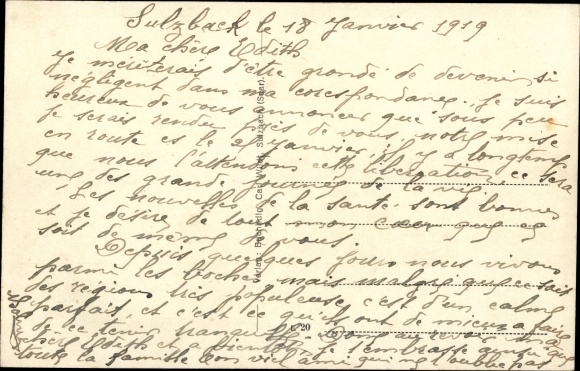 Sulzback le 18 Janvier 1919
Ma chère Edith
Je mériterais d'être grondé de devenir si
négligent dans ma corespondance. Je suis
heureux de vous annoncer que sous peu
je serais rendu près de vous, notre mise
en route est le 21 janvier il y a longtemps
que nous l'attendons cette libération, ce sera
une des grande journée de la vie.
Les nouvelles de la santé sont bonnes
et je désire de tout mon cœur que ce
soit de même de vous.
Depuis quelques jours nous vivons
parmi les boches mais malgré que ce soit
des régions très populeuse, c'est d'un calme
parfait, et c'est ce qu'ils ont de mieux a faire
de ce tenir tranquille. Donc au revoir ma
chère Edith et a bientôt. Je t'embrasse ainsi que
toute la famille ton viel ami qui ne t'oublie pas
Verlag: Buchhdlg. Carl Sulzbach (Saar).
L 20